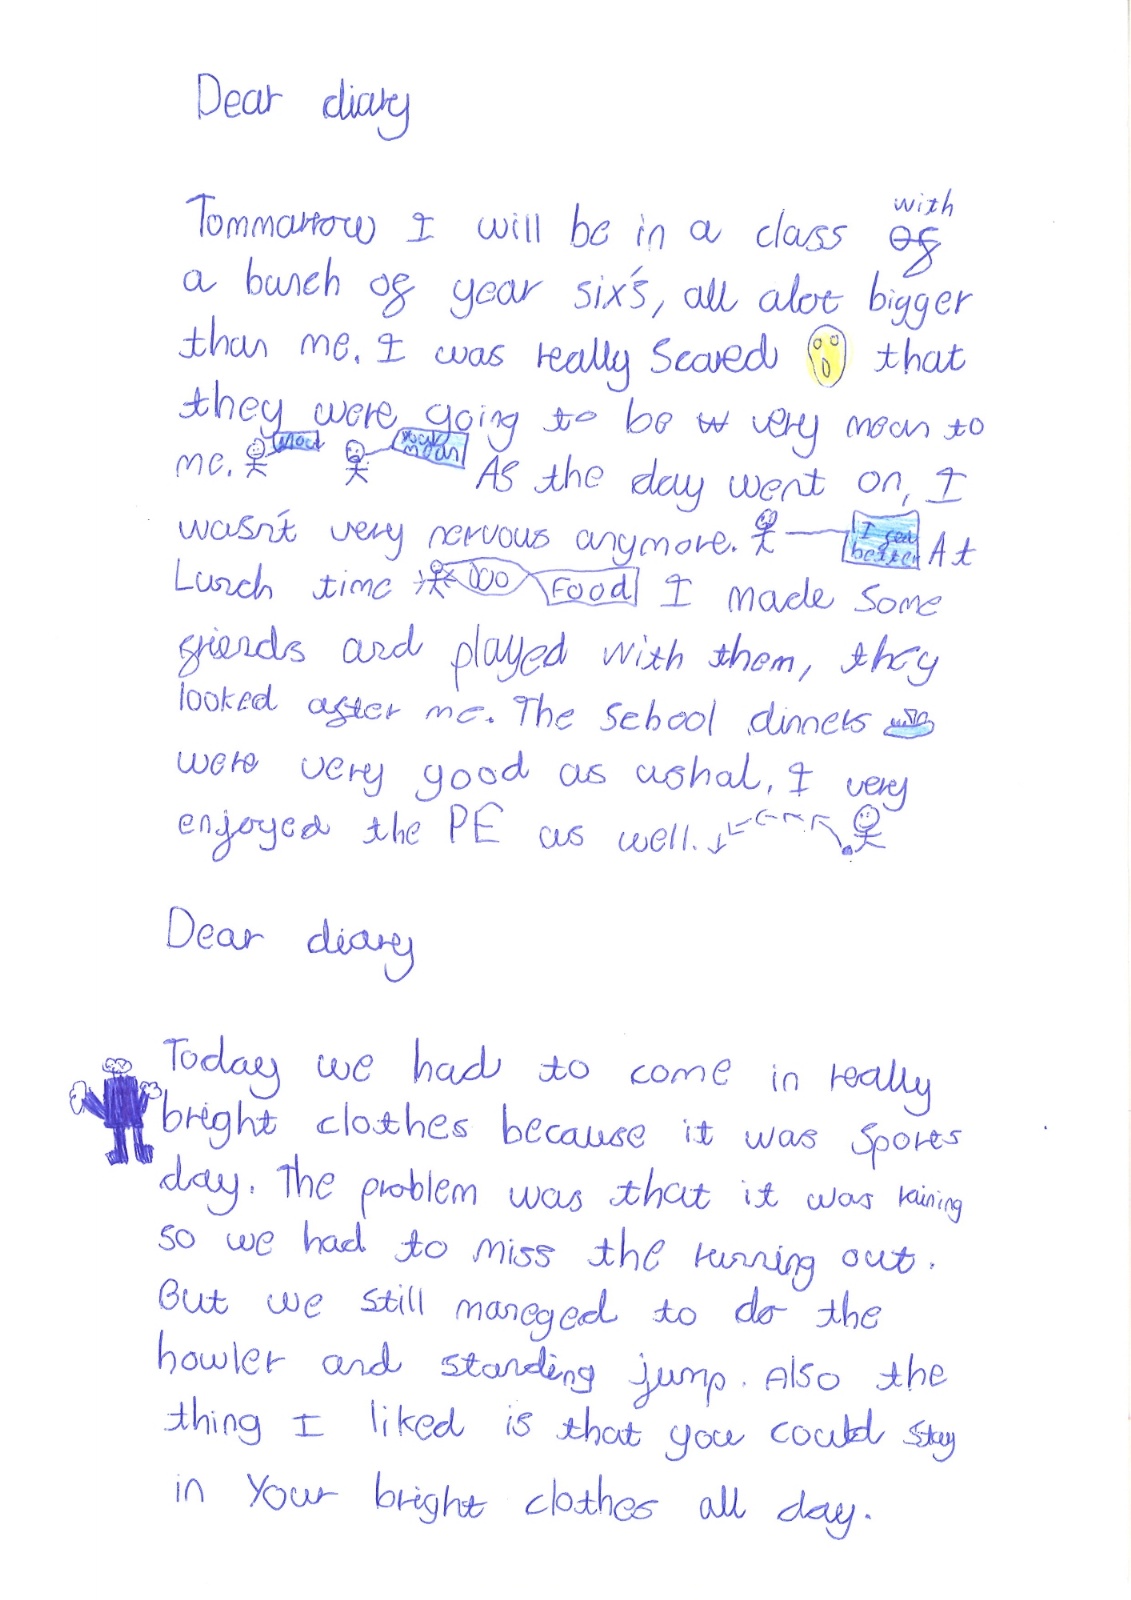 Dear diary
Tommarrow I will be in a class of with
a bunch of year six's, all alot bigger
than me. I was really Scared that
they were going to be w very mean to
me. your mean As the day went on, I
wasn't very nervous anymore. I feel better At
Lunch time Food I made some
friends and played with them, they
looked after me. The School dinners
were very good as ushal, I very
enjoyed the PE as well.
Dear diary
Today we had to come in really
bright clothes because it was Sports
day. The problem was that it was raining
so we had to miss the running out.
But we still maneged to do the
howler and standing jump. Also the
thing I liked is that you could stay
in your bright clothes all day.